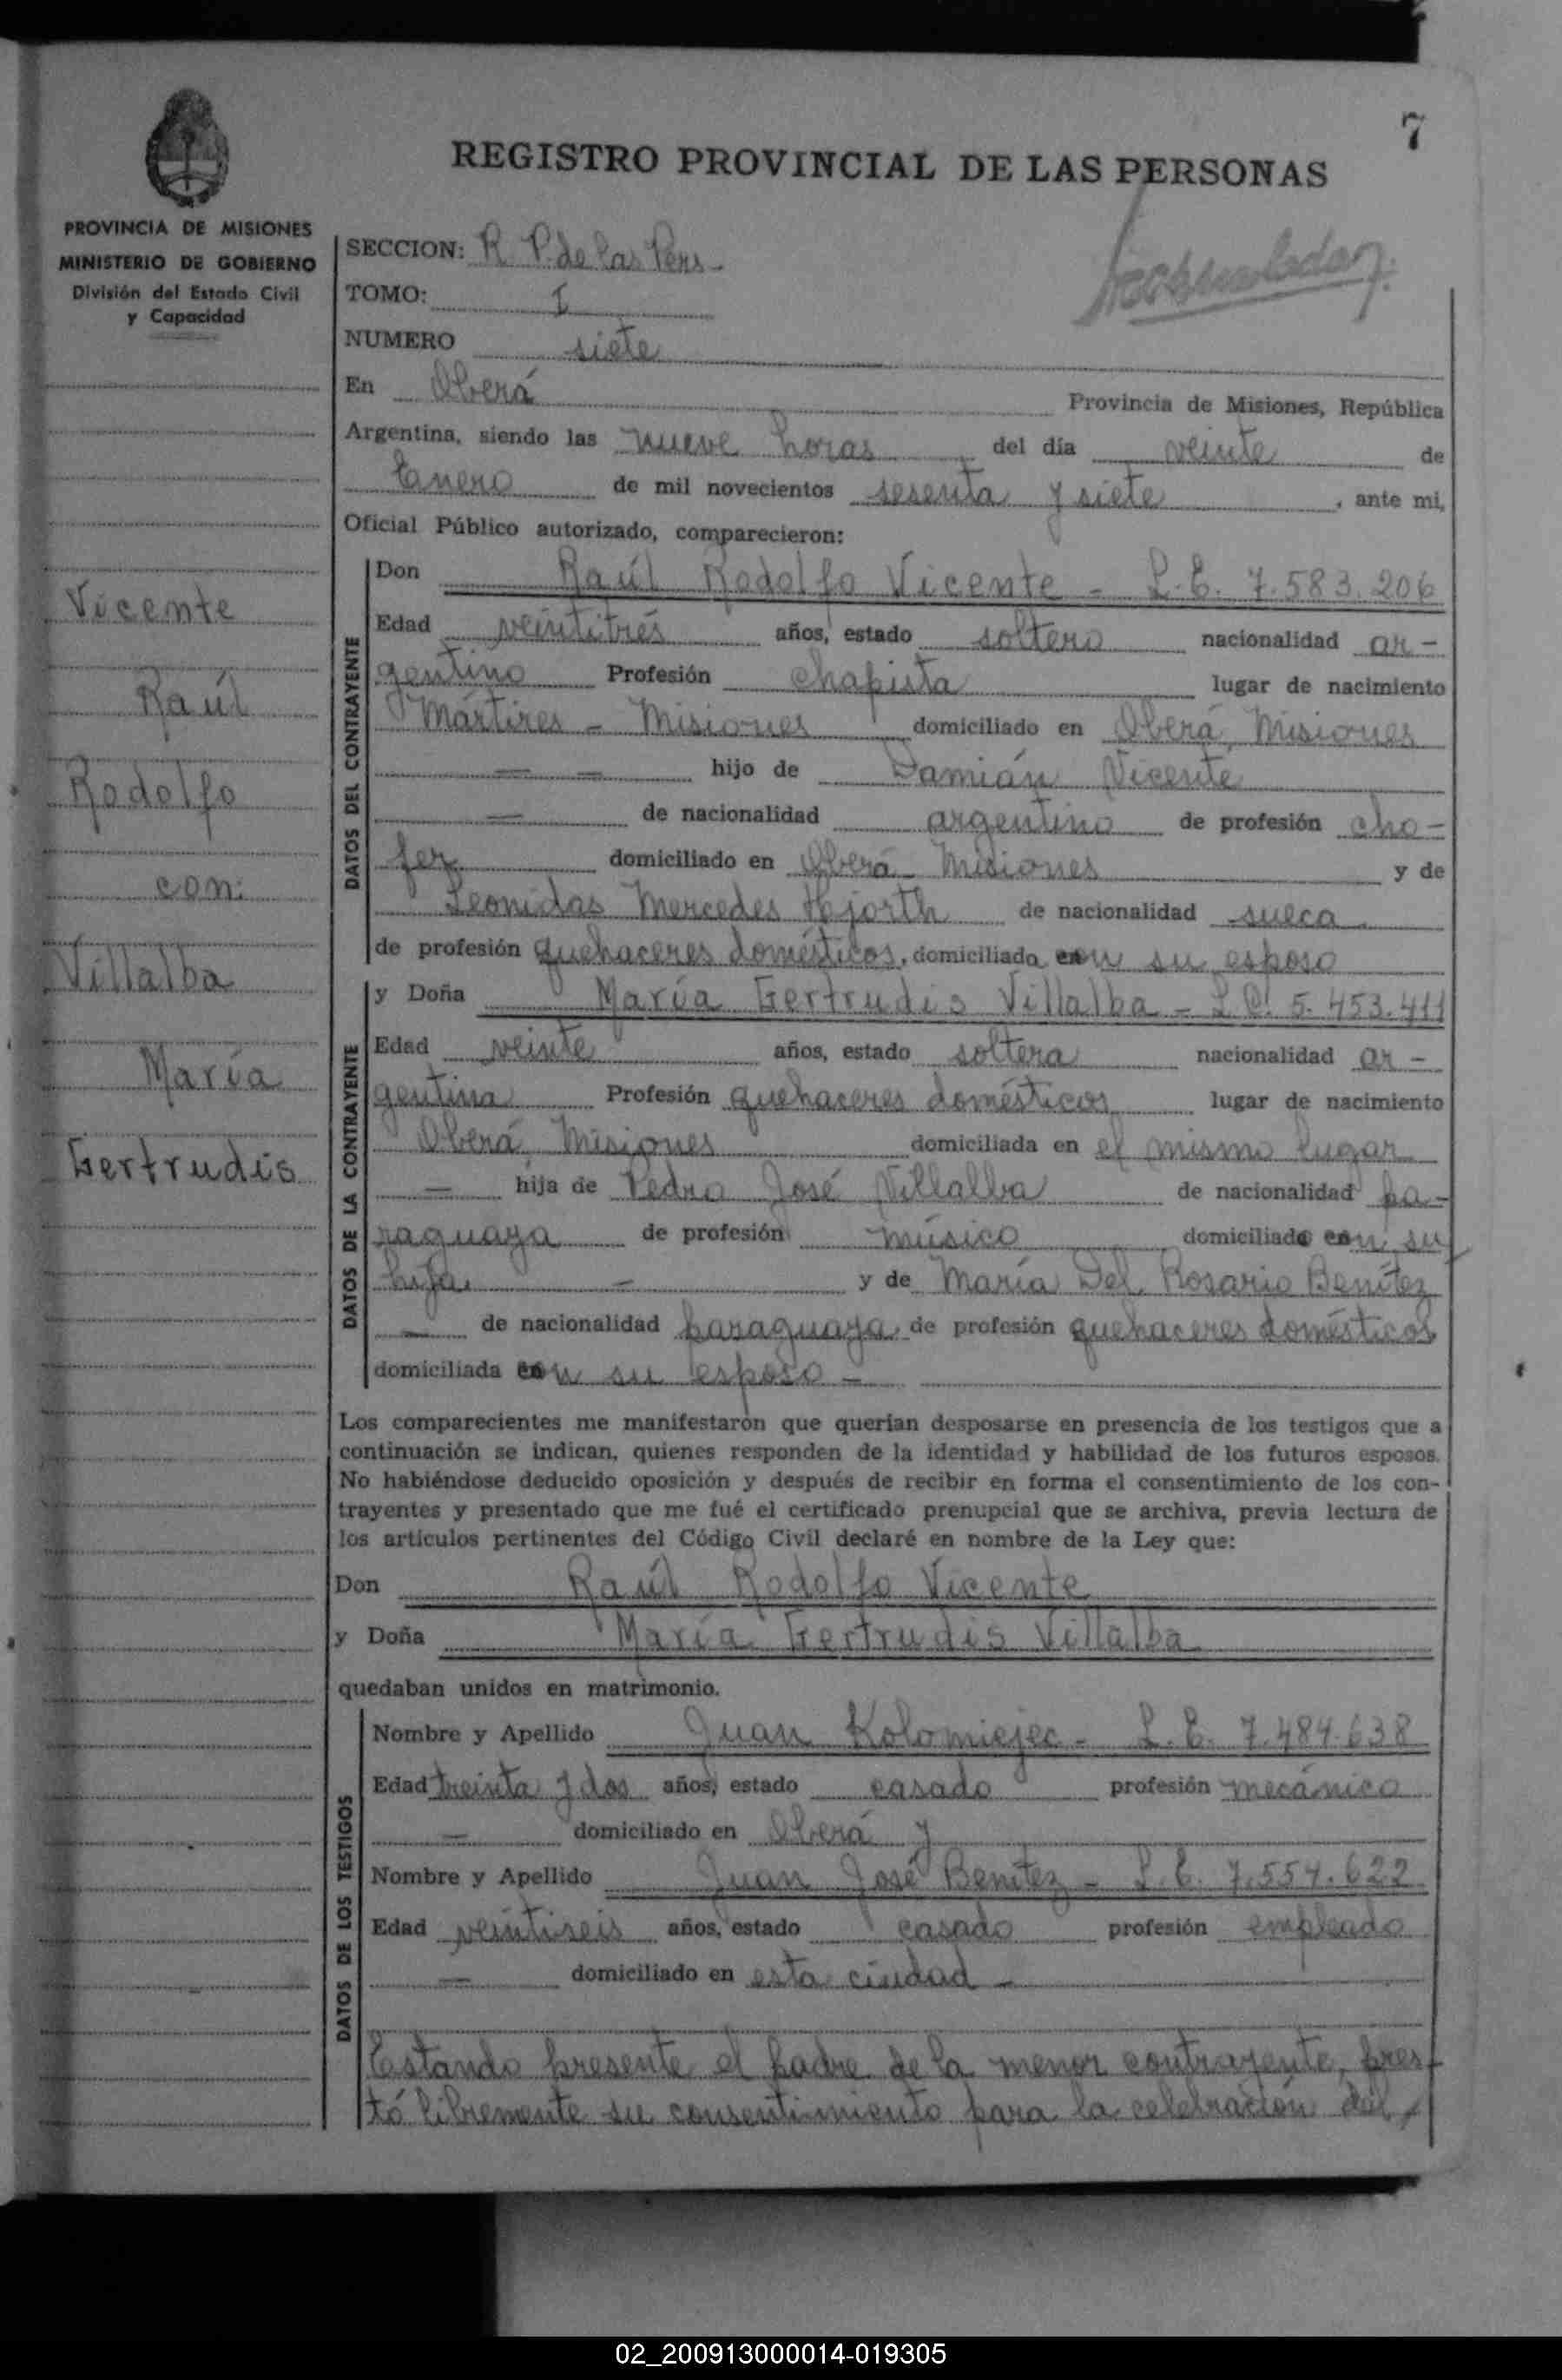 7
REGISTRO PROVINCIAL DE LAS PERSONAS
PROVINCIA DE MISIONES
MINISTERIO DE GOBIERNO
División del Estado Civil
y Capacidad
Vicente
Raúl
Rodolfo
con:
Villalba
María
Gertrudis
SECCION: R. P. de las Pers.
TOMO: I
NUMERO siete
En Oberá Provincia de Misiones, República
Argentina, siendo las nueve horas del día veinte de
Enero de mil novecientos sesenta y siete, ante mi,
Oficial Público autorizado, comparecieron:
DATOS DEL CONTRAYENTE
Don Raúl Rodolfo Vicente - L.E. 7.583.206
Edad veintitrés años, estado soltero nacionalidad ar-
gentino Profesión chapista lugar de nacimiento
Mártires - Misiones domiciliado en Oberá, Misiones
— — hijo de Damián Vicente
— de nacionalidad argentino de profesión cho-
fer domiciliado en Oberá - Misiones y de
Leonidas Mercedes Hjorth de nacionalidad sueca
de profesión quehaceres domésticos, domiciliada con su esposo
DATOS DE LA CONTRAYENTE
y Doña María Gertrudis Villalba - L.C. 5.453.411
Edad veinte años, estado soltera nacionalidad ar-
gentina Profesión quehaceres domésticos lugar de nacimiento
Oberá, Misiones domiciliada en el mismo lugar
— hija de Pedro José Villalba de nacionalidad pa-
raguaya de profesión músico domiciliado con su
hija — y de María Del Rosario Benítez
— de nacionalidad paraguaya de profesión quehaceres domésticos
domiciliada con su esposo -
Los comparecientes me manifestarón que querían desposarse en presencia de los testigos que a
continuación se indican, quienes responden de la identidad y habilidad de los futuros esposos.
No habiéndose deducido oposición y después de recibir en forma el consentimiento de los con-
trayentes y presentado que me fué el certificado prenupcial que se archiva, previa lectura de
los artículos pertinentes del Código Civil declaré en nombre de la Ley que:
Don Raúl Rodolfo Vicente
y Doña María Gertrudis Villalba
quedaban unidos en matrimonio.
DATOS DE LOS TESTIGOS
Nombre y Apellido Juan Kolomiejec - L.E. 7.484.638
Edad treinta y dos años, estado casado profesión mecánico
— domiciliado en Oberá y
Nombre y Apellido Juan José Benítez - L.E. 7.557.622
Edad veintiseis años, estado casado profesión empleado
— domiciliado en esta ciudad -
Estando presente el padre de la menor contrayente, pres-
tó libremente su consentimiento para la celebración del
02_200913000014-019305